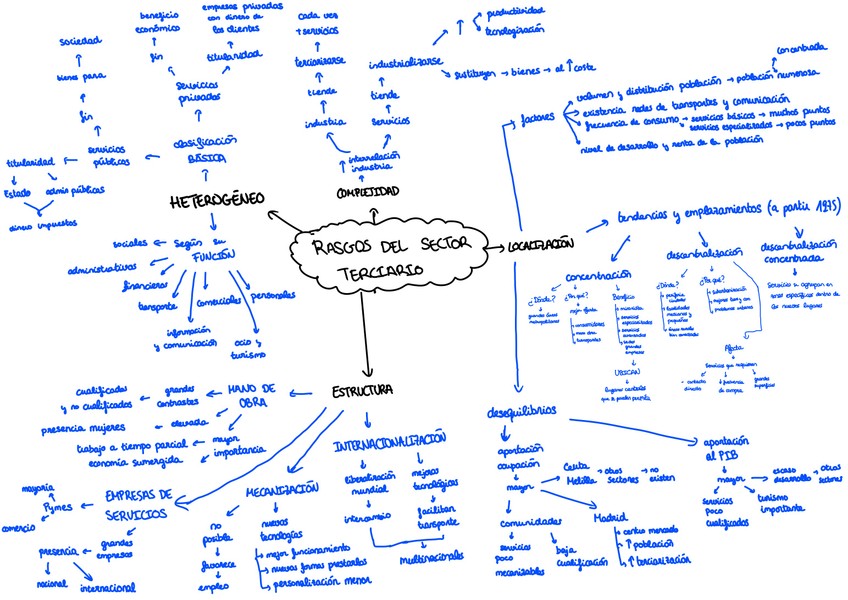 RASGOS DEL SECTOR
TERCIARIO
HETEROGÉNEO
clasificación
BÁSICA
servicios
públicos
fin
bienes para
sociedad
titularidad
Estado
admin públicas
dinero impuestos
servicios
privados
fin
beneficio
económico
titularidad
empresas privadas
con dinero de
los clientes
Según su
FUNCIÓN
sociales
administrativas
financieros
transporte
información
y comunicación
comerciales
ocio y
turismo
personales
COMPLEJIDAD
interrelación
industria
industria
tiende
terciarizarse
cada vez
+ servicios
servicios
tiende
industrializarse
↑
productividad
tecnologización
sustituyen → bienes → al ↑ coste
LOCALIZACIÓN
factores
volumen y distribución población → población numerosa
concentrada
existencia redes de transportes y comunicación
frecuencia de consumo → servicios básicos → muchos puntos
servicios especializados → pocos puntos
nivel de desarrollo y renta de la población
tendencias y emplazamientos (a partir 1975)
concentración
¿Dónde?
grandes áreas
metropolitanas
¿Por qué?
transportes
Beneficio
servicios
especializados
servicios
avanzados
sedes
grandes
empresas
UBICAN
lugares centrales
descentralización
¿Dónde?
periferia
medianas y
pequeñas
¿Por qué?
suburbanización
Afecta
servicios que requieren
contacto
directo
↑ frecuencia
de compra
grandes
superficies
descentralización
concentrada
servicios se agrupan en
áreas específicas dentro de
los nuevos lugares
desequilibrios
aportación
ocupación
mayor
Ceuta
Melilla
→ otros
sectores
→ no
existen
comunidades
servicios
poco
mecanizables
baja
cualificación
Madrid
centro mercado
↑ población
↑ terciarización
aportación
al PIB
mayor
escaso
desarrollo
→ otros
sectores
servicios
poco
cualificados
turismo
importante
ESTRUCTURA
MANO DE
OBRA
grandes
contrastes
cualificados
y no cualificados
elevada
presencia mujeres
mayor
importancia
trabajo a tiempo parcial
economía sumergida
EMPRESAS DE
SERVICIOS
Pymes
mayoría
comercio
grandes
empresas
presencia
nacional
internacional
MECANIZACIÓN
no
posible
favorece
empleo
nuevas
tecnologías
mejor funcionamiento
nuevas formas prestarlos
personalización menor
INTERNACIONALIZACIÓN
liberalización
mundial
intercambio
mejoras
tecnológicas
facilitan
transporte
multinacionales